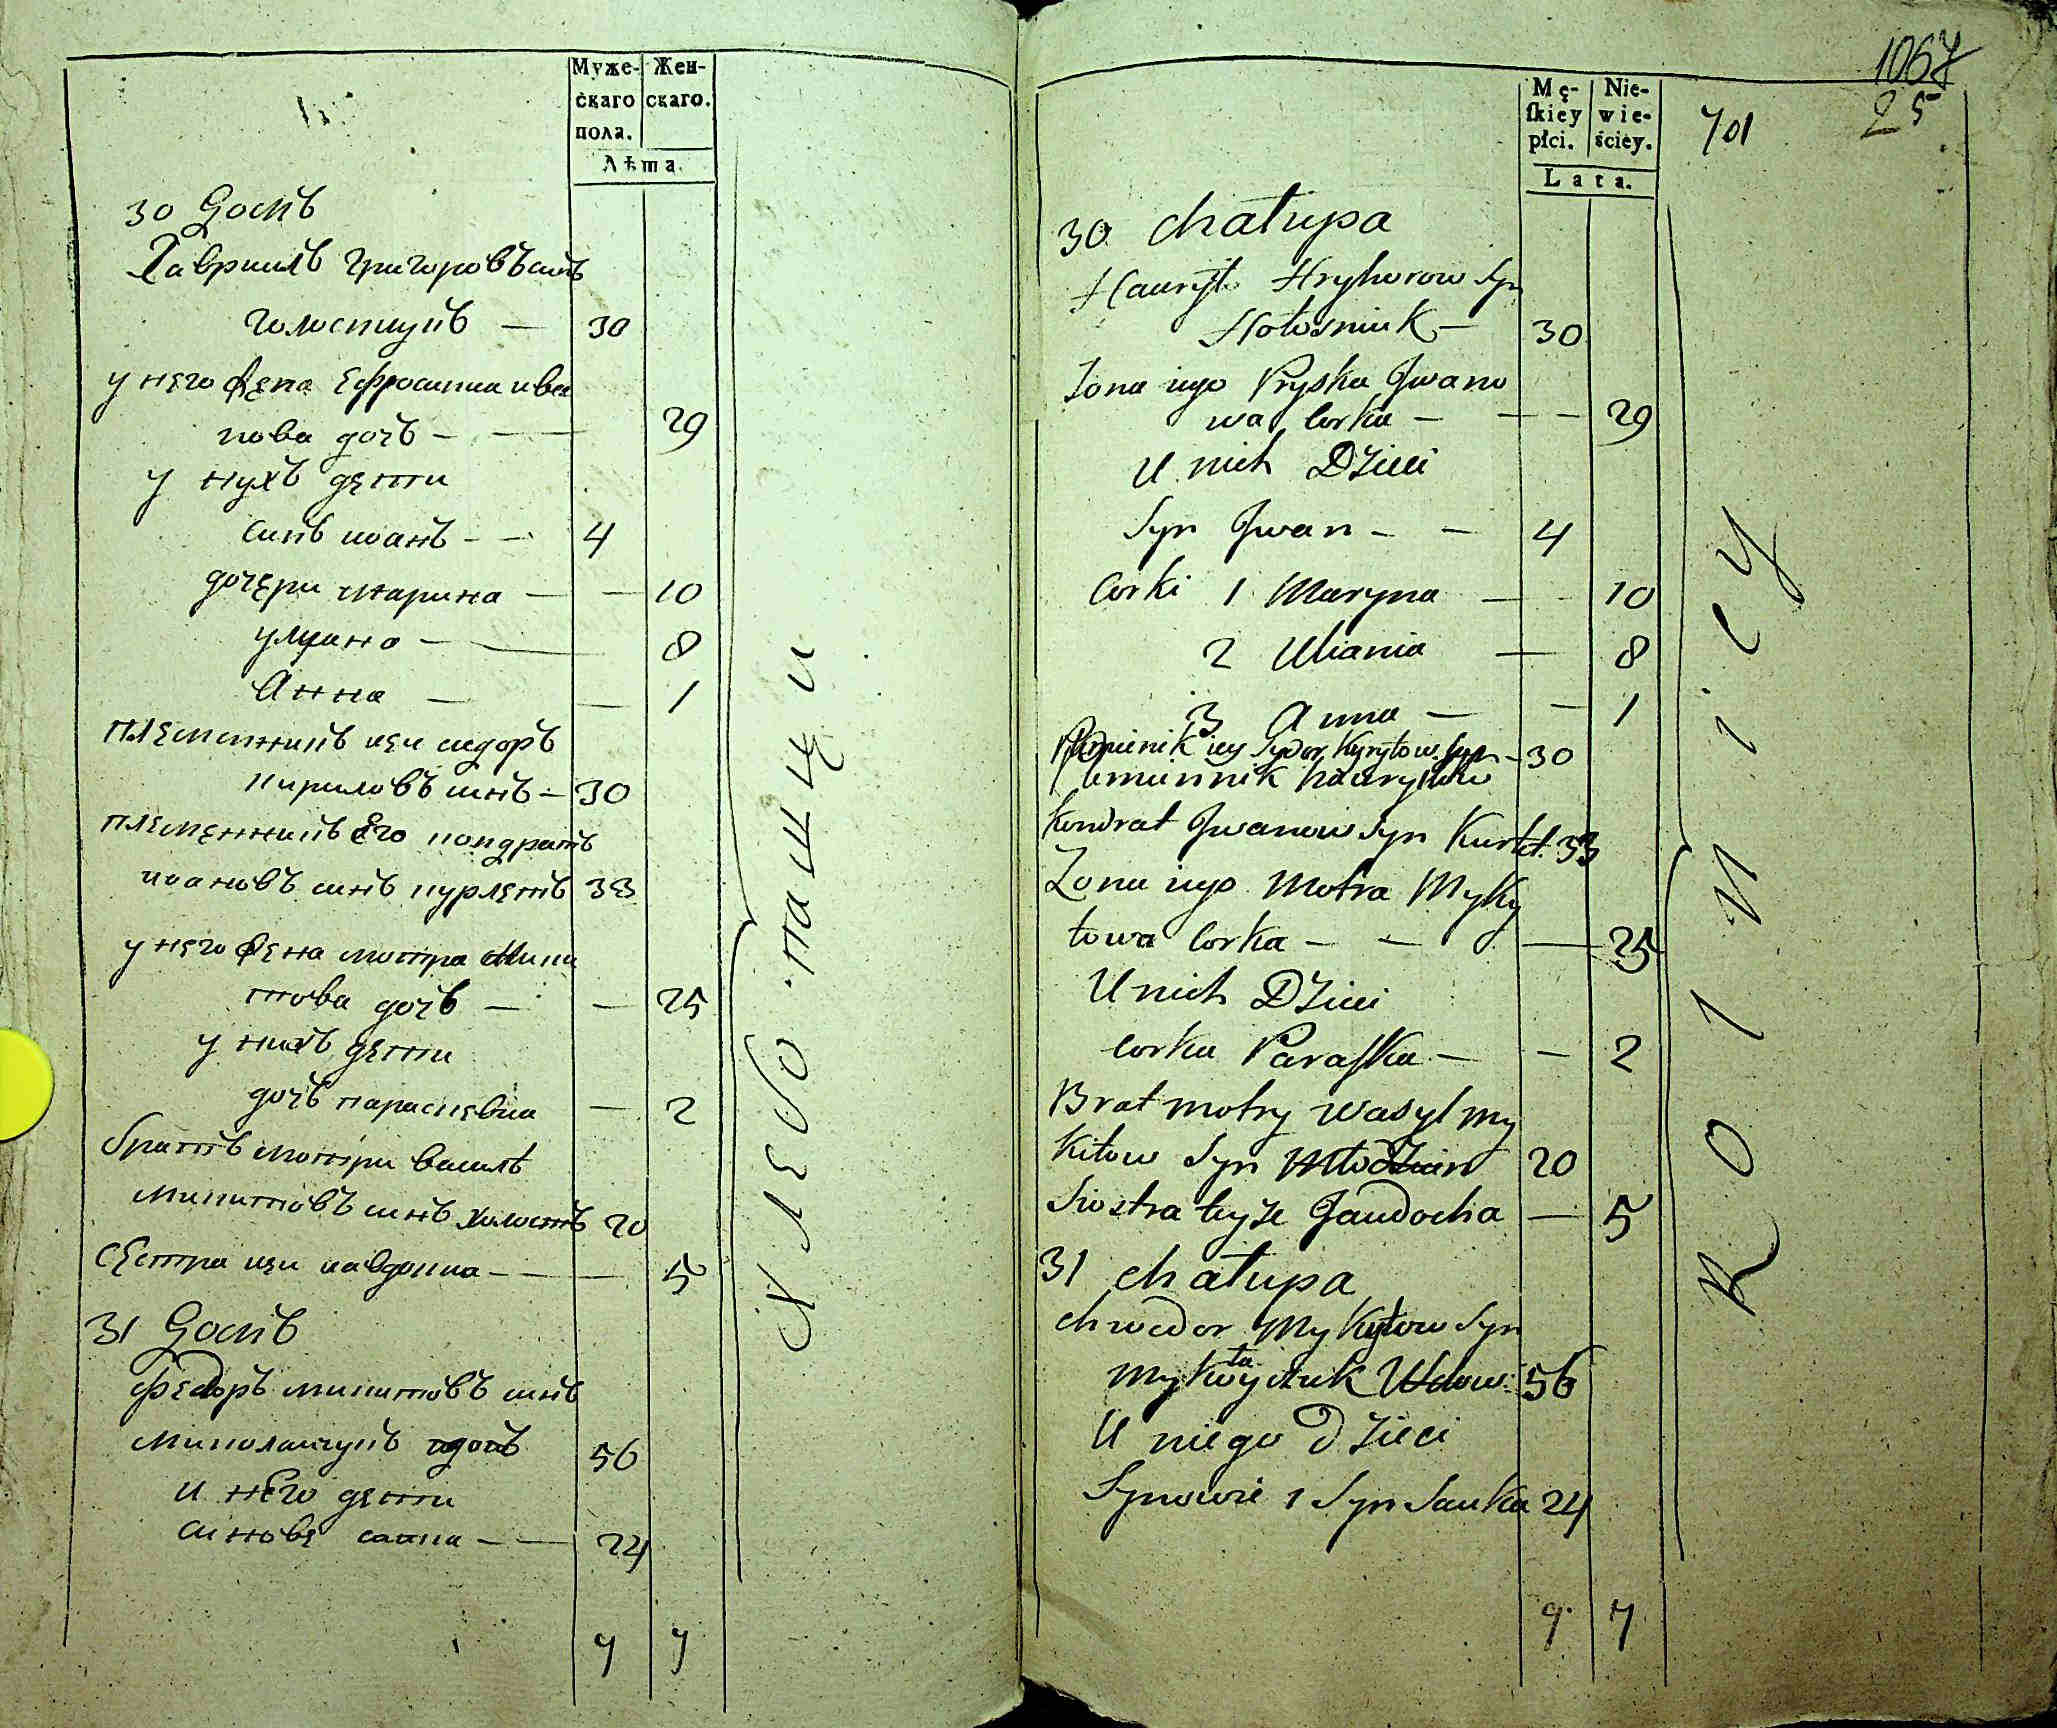 Муже-
скаго
пола.
Жен-
скаго.
Лѣта.
30 Домъ
Гавриилъ григоровъ синъ
голоснуикъ — 30
у него жена Ефросиниа ива
нова дочъ — — — 29
у нихъ дети
синъ иоанъ — — 4
дочери марина — — 10
улиана — 8
Анна — — 1
племенникъ иеи сидоръ
кириловъ синъ — 30
племенникъ Его кондратъ
иоановъ синъ курлетъ 33
у него жена мотра мики
това дочъ — — 25
у нихъ дети
дочъ параскевиа — 2
братъ мотри василъ
микитовъ синъ холостъ 20
сестра иеи иавдокиа — — 5
31 Домъ
Федоръ микитовъ синъ
миколаичукъ вдовъ 56
и него дети
синове савка — — 24
7 7
хлебопашци
1067
25
701
Mę-
ſkiey
płci.
Nie-
wie-
ściey.
Lata.
30 chałupa
Haurył Hryhorow Syn
Hołosniuk — 30
Zona iego Pryska Jwano
wa Corka — — — 29
U nich Dzieci
Syn Jwan — — 4
Corki 1 Maryna — — 10
2 Uliania — 8
3 Anna — — 1
Plemienik iey Sydor Kyryłow Syn — 30
Plemiennik hauryłow
Kondrat Jwanow Syn Kurlet. 33
Zona iego Motra Myky
towa Corka — — — 25
U nich Dzieci
Corka Paraſka — — 2
Brat motry wasyl my
kitow Syn Młodzian 20
Siostra teyże Jaudocha — 5
31 chałupa
Chwedor Mykytow Syn
Wdow. 56
U niego Dzieci
Synowie 1 Syn Sauka 24
9 7
Rolnicy